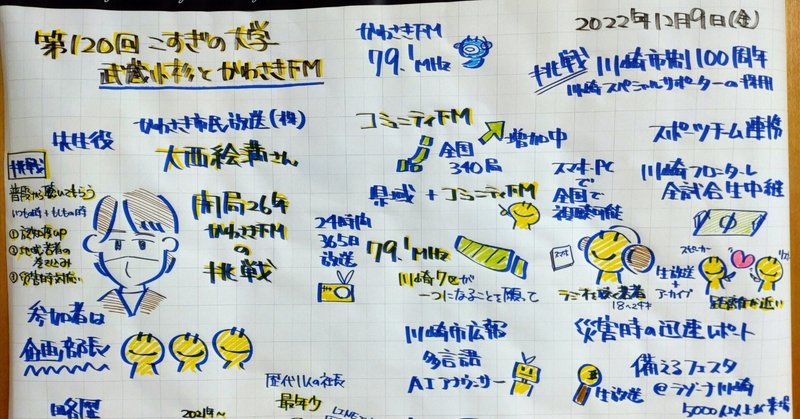 第120回 こすぎの大学
武蔵小杉とかわさきFM
先生役
かわさき市民放送(株)
大西絵満さん
挑戦
普段から聴いてもらう
いつもの時+もしもの時
①認知度up
②地域・若者の
巻き込み
③災害時対応
開局26年
かわさきFM
の
挑戦
参加者は
企画部長
略歴
2021年~
歴代1人の社長
最年少
かわさきFM
79.1MHz
コミュニティFM
増加中
全国
340局
県域+コミュニティFM
24時間
365日
放送
79.1MHz
川崎7色が
一つになることを願って
川崎市広報
多言語
AIアナウンサー
2022年12月9日(金)
挑戦 川崎市制100周年
川崎スペシャルサポーターの採用
スポーツチーム連携
川崎フロンターレ
全試合生中継
スマホ・PC
で
全国で
視聴可能
スマホ
ラジオを聴く若者
18~24才
生放送
+
アーカイブ
スピーカー
リスナー
距離が近い
災害時の迅速レポート
備えるフェスタ
@ラゾーナ川崎
生放送
5000人以上が来場